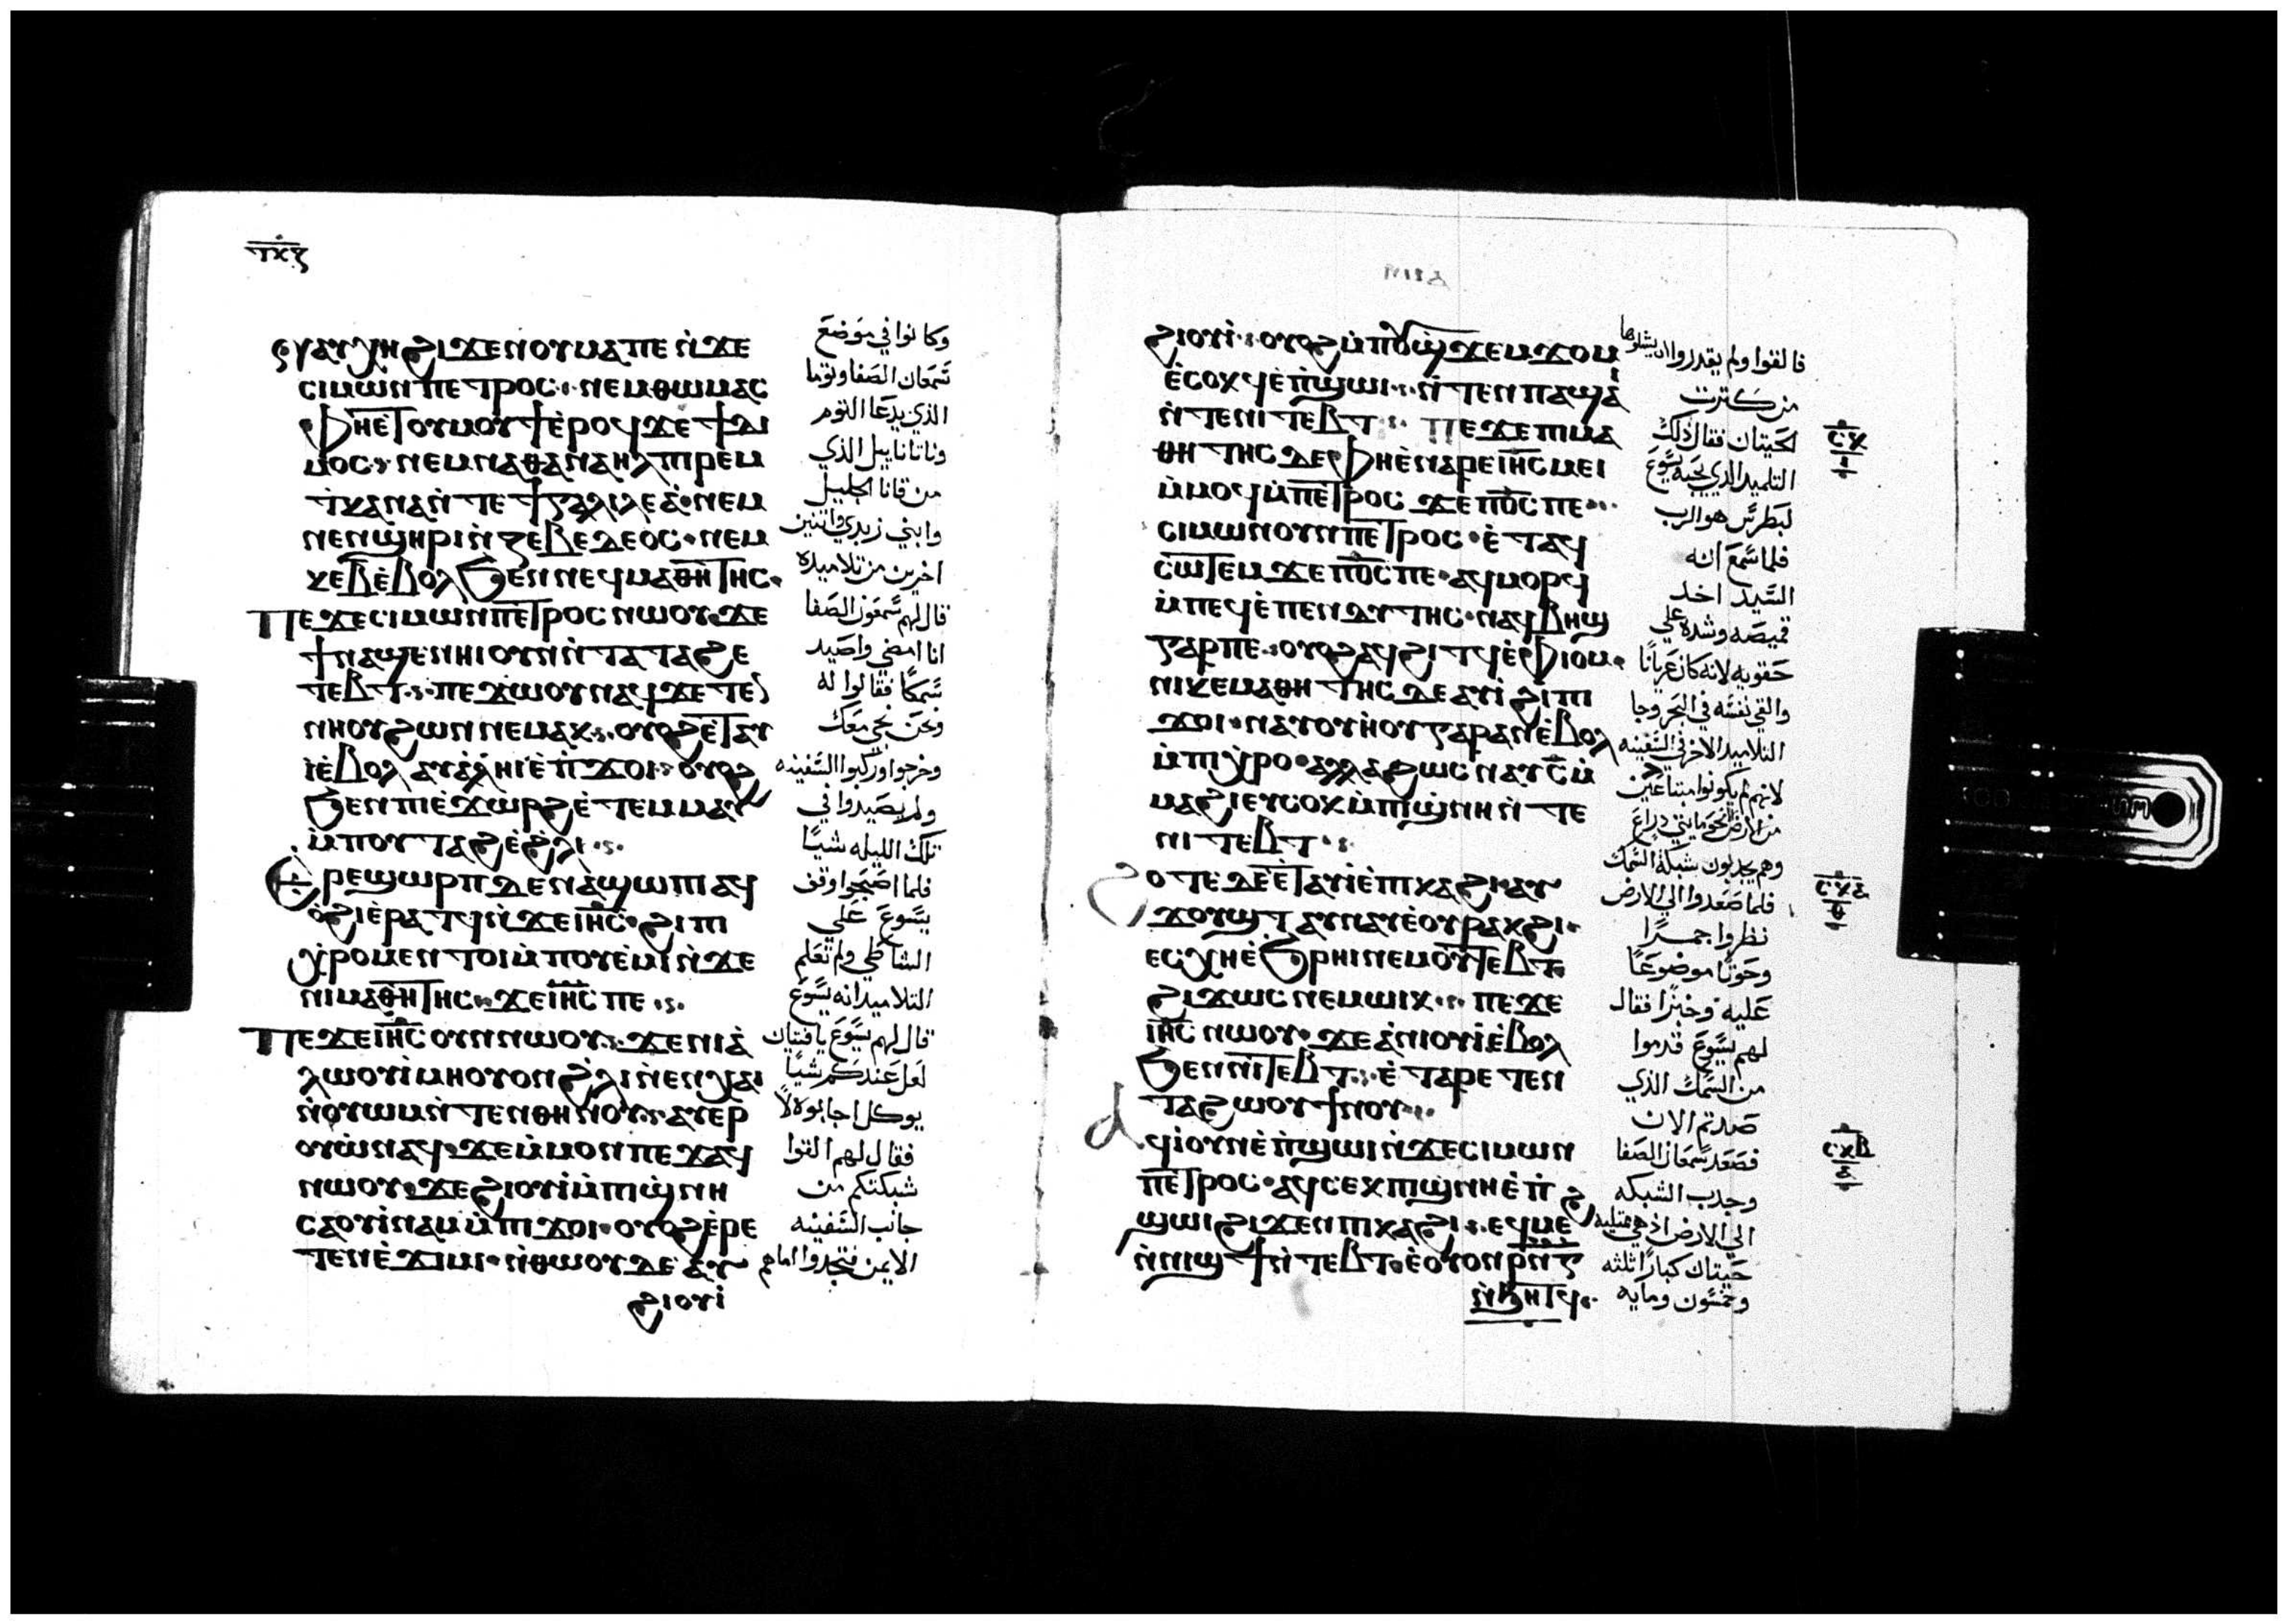 ⲧⲝⲍ
ⲉⲩⲁⲩⲭⲏ ϩⲓϫⲉⲛⲟⲩⲙⲁⲡⲉ ⲛ̀ϫⲉ
ⲥⲓⲙⲱⲛ ⲡⲉⲧⲣⲟⲥ ⲛⲉⲙⲑⲱⲙⲁⲥ
ⲫⲏⲉ̀ⲧⲟⲩⲙⲟⲩϯ ⲉ̀ⲣⲟϥ ϫⲉ ϯⲇⲓ
ⲙⲟⲥ ⲛⲉⲙⲛⲁⲑⲁⲛⲁⲏⲗ ⲡⲓⲣⲉⲙ
ⲧ̀ⲕⲁⲛⲁ ⲛ̀ⲧⲉ ϯⲅⲁⲗⲓⲗⲉⲁ̀ ⲛⲉⲙ
ⲛⲉⲛϣⲏⲣⲓ ⲛ̀ⲍⲉⲃⲉⲇⲉⲟⲥ ⲛⲉⲙ
ⲕⲉⲃ̅ ⲉ̀ⲃⲟⲗ ϧⲉⲛⲛⲉϥⲙⲁⲑⲏⲧⲏⲥ
ⲡⲉϫⲉⲥⲓⲙⲱⲛ ⲡⲉⲧⲣⲟⲥ ⲛⲱⲟⲩ ϫⲉ
ϯⲛⲁϣⲉⲛⲏⲓ ⲟⲩⲛ ⲛ̀ⲧⲁⲧⲁϩⲉ
ⲧⲉⲃⲧ ⲡⲉϫⲱⲟⲩ ⲛⲁϥ ϫⲉ ⲧⲉⲛ
ⲛⲏⲟⲩ ϩⲱⲛ ⲛⲉⲙⲁⲕ ⲟⲩⲟϩ ⲉ̀ⲧⲁⲩ
ⲓ̀ⲉ̀ⲃⲟⲗ ⲁⲩⲁ̀ⲗⲏⲓ ⲉ̀ⲡ̀ϫⲟⲓ ⲟⲩⲟϩ
ϧⲉⲛⲡⲓⲉ̀ϫⲱⲣϩ ⲉ̀ⲧⲉⲙⲙⲁⲩ
ⲙ̀ⲡⲟⲩⲧⲁϩⲉ ϩ̀ⲗⲓ
ⲉ̀ⲧⲣⲉϣⲱⲣⲡ ⲇⲉ ⲛⲁϣⲱⲡⲓ ⲁϥ
ⲟ̀ϩⲓ ⲉ̀ⲣⲁⲧϥ ⲛ̀ϫⲉⲓⲏ̅ⲥ̅ ϩⲓⲡⲓ
ⲭ̀ⲣⲟ ⲙⲉⲛⲧⲟⲓ ⲙ̀ⲡⲟⲩⲉ̀ⲙⲓ ⲛ̀ϫⲉ
ⲛⲓⲙⲁⲑⲏⲧⲏⲥ ϫⲉ ⲓⲏ̅ⲥ̅ ⲡⲉ
ⲡⲉϫⲉⲓⲏ̅ⲥ̅ ⲟⲩⲛ ⲛⲱⲟⲩ ϫⲉ ⲛⲓⲁ̀
ⲗⲱⲟⲩⲓ̀ ⲙⲏ ⲟⲩⲟⲛ ϩ̀ⲗⲓ ⲛ̀ⲉⲛⲭⲁⲓ
ⲛ̀ⲟⲩⲱⲙ ⲛ̀ⲧⲉⲛⲑⲏⲛⲟⲩ ⲁⲩⲉⲣ
ⲟⲩⲱ̀ ⲛⲁϥ ϫⲉ ⲙ̀ⲙⲟⲛ ⲡⲉϫⲁϥ
ⲛⲱⲟⲩ ϫⲉ ϩⲓⲟⲩⲓ̀ ⲙ̀ⲡⲓϣ̀ⲛⲏ
ⲥⲁⲟⲩⲓ̀ⲛⲁⲙ ⲙ̀ⲡⲓϫⲟⲓ ⲟⲩⲟϩ ⲉ̀ⲣⲉ
ⲧⲉⲛⲉ̀ϫⲓⲙⲓ ⲛ̀ⲑⲱⲟⲩ ⲇⲉ ⲁⲩ
ϩⲓⲟⲩⲓ̀
وكانوا في موضع
سمعان الصفا وتوما
الذي يدعا التوم
وناتانايل الذي
من قانا الجليل
وابني زبدي واثنين
اخرين من تلاميده
قال لهم سمعون الصفا
انا امضي واصيد
سمكا فقالوا له
ونحن نجي معك
وخرجوا وركبوا السفينه
ولم يصيدوا في
تلك الليله شيا
فلما اصبحوا وقف
يسوع علي
الشاطي ولم تعلم
التلاميد انه يسوع
قال لهم يسوع يا فتيان
لعل عندكم شيا
يوكل اجابوه لا
فقال لهم القوا
شبكتكم من
جانب السفينه
الايمن فتجدوا اماهم
ϩⲓⲟⲩⲓ̀ ⲟⲩⲟϩ ⲙ̀ⲡⲟⲩϣ̀ϫⲉⲙϫⲟⲙ
ⲉ̀ⲥⲟⲕϥ ⲉ̀ⲡ̀ϣⲱⲓ ⲛ̀ⲧⲉⲛⲡⲁϣⲁⲓ̀
ⲛ̀ⲧⲉⲛⲓⲧⲉⲃⲧ ⲡⲉϫⲉⲡⲓⲙⲁ
ⲑⲏⲧⲏⲥ ⲇⲉ ⲫⲏⲉ̀ⲛⲁⲣⲉ ⲓⲏ̅ⲥ̅ ⲙⲉⲓ
ⲙ̀ⲙⲟϥ ⲙ̀ⲡⲉⲧⲣⲟⲥ ϫⲉ ⲡⲟ̅ⲥ̅ ⲡⲉ
ⲥⲓⲙⲱⲛ ⲟⲩⲛ ⲡⲉⲧⲣⲟⲥ ⲉ̀ⲧⲁϥ
ⲥⲱⲧⲉⲙ ϫⲉ ⲡⲟ̅ⲥ̅ ⲡⲉ ⲁϥⲙⲟⲣϥ
ⲙ̀ⲡⲉϥⲉ̀ⲡⲉⲛⲇⲩⲧⲏⲥ ⲛⲁϥⲃⲏϣ
ⲅⲁⲣⲡⲉ ⲟⲩⲟϩ ⲁϥϩⲓⲧϥ ⲉ̀ⲫⲓⲟⲙ
ⲛⲓⲕⲉⲙⲁⲑⲏⲧⲏⲥ ⲇⲉ ⲁⲩⲓ̀ ϩⲓⲡⲓ
ϫⲟⲓ ⲛⲁⲩⲟⲩⲏ̀ⲟⲩ ⲅⲁⲣ ⲁⲛ ⲉ̀ⲃⲟⲗ
ⲙ̀ⲡⲓⲭ̀ⲣⲟ ⲁⲗⲗⲁ ϩⲱⲥ ⲛⲁⲩ ⲥ̅ ⲙ̀
ⲙⲁϩⲓ ⲉⲩⲥⲟⲕ ⲙ̀ⲡⲓϣ̀ⲛⲏ ⲛ̀ⲧⲉ
ⲛⲓⲧⲉⲃⲧ
ϩⲟⲧⲉ ⲇⲉ ⲉ̀ⲧⲁⲩⲓ̀ ⲉ̀ⲡⲓⲕⲁϩⲓ ⲁⲩ
ϫⲟⲩϣⲧ ⲁⲩⲛⲁⲩ ⲉ̀ⲟⲩⲣⲁⲕϩⲓ
ⲉⲥⲭⲏ ⲉ̀ϧⲣⲏⲓ ⲛⲉⲙⲟⲩⲧⲉⲃⲧ
ϩⲓϫⲱⲥ ⲛⲉⲙⲱⲓⲕ ⲡⲉϫⲉ
ⲓⲏ̅ⲥ̅ ⲛⲱⲟⲩ ϫⲉ ⲁ̀ⲛⲓⲟⲩⲓ̀ ⲉ̀ⲃⲟⲗ
ϧⲉⲛⲛⲓⲧⲉⲃⲧ ⲉ̀ⲧⲁⲣⲉⲧⲉⲛ
ⲧⲁϩⲱⲟⲩ ϯⲛⲟⲩ
ⲁϥⲓ̀ ⲟⲩⲛ ⲉ̀ⲡ̀ϣⲱⲓ ⲛ̀ϫⲉⲥⲓⲙⲱⲛ
ⲡⲉⲧⲣⲟⲥ ⲁϥⲥⲉⲕ ⲡⲓϣ̀ⲛⲏ ⲉ̀ⲡ̀
ϣⲱⲓ ϩⲓϫⲉⲛⲡⲓⲕⲁϩⲓ ⲉϥⲙⲉϩ
ⲛ̀ⲛⲓϣϯ ⲛ̀ⲧⲉⲃⲧ ⲉ̀ⲟⲩⲟⲛ ⲣ̅ⲛ̅ⲅ̅
ⲛ̀ϧⲏⲧϥ
فالقوا ولم يقدروا ان يشلوها
من كترت
الحيتان فقال ذلك
التلميد الذي يحبه يسوع
لبطرس هو الرب
فلما سمع انه
السيد اخد
قميصه وشده علي
حقويه لانه كان عريانا
والقي نفسه في البحر وجا
التلاميد الاخر في السفينه
لانهم لم يكونوا متباعين
من الارض الا نحو مايتي دراع
وهم يجدبون شبكة السمك
فلما صعدوا الي الارض
نظروا جمرا
وحوتا موضوعا
عليه وخبزا فقال
لهم يسوع قدموا
من السمك الذي
صدتم الان
فصعد سمعان الصفا
وجدب الشبكه
الي الارض اذ هي ممتليه
حيتان كبارا ثلثه
وخمسون ومايه
ⲥⲕ
ⲥⲕⲁ
ⲑ
ⲥⲕⲃ